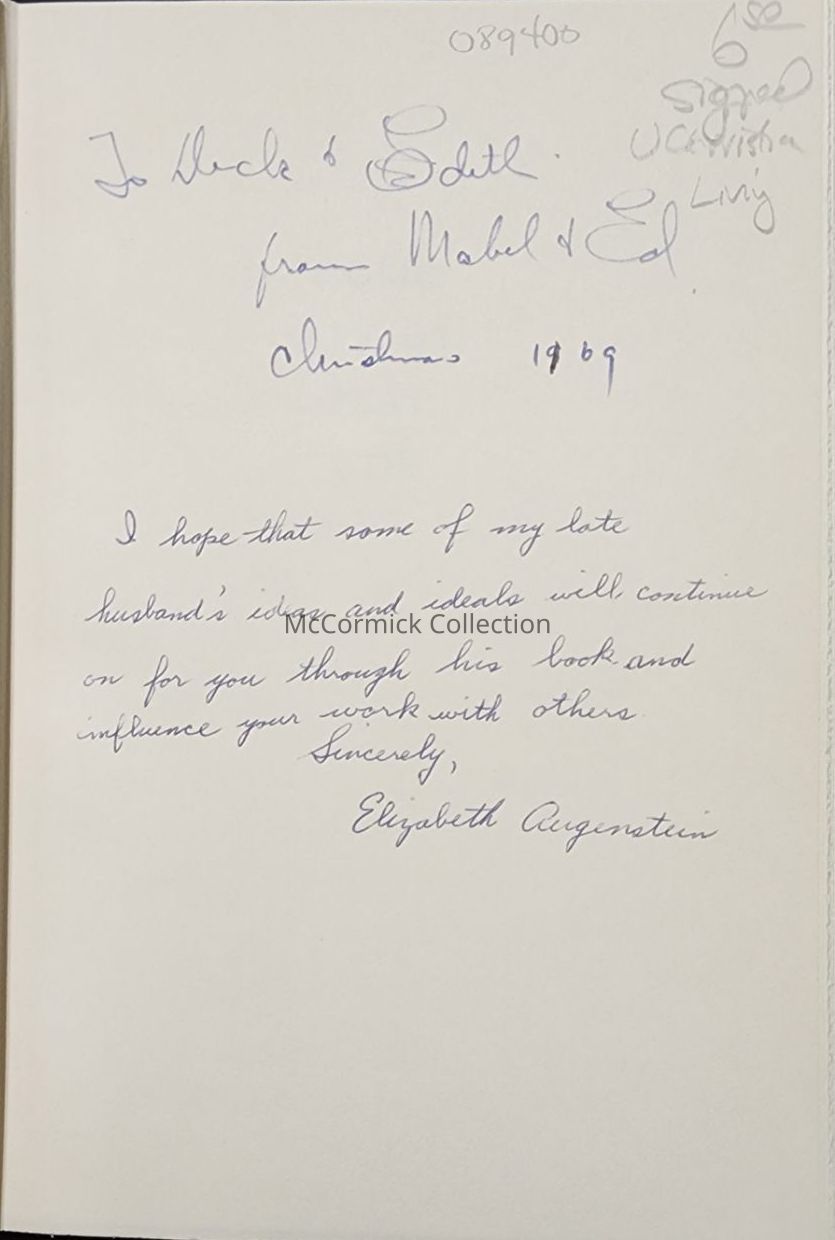 089400
6 50
Signed
Christian
Living
To Dick & Edith
from Mabel & Ed
Christmas 1969
I hope that some of my late
husband's ideas and ideals will continue
McCormick Collection
on for you through his book and
influence your work with others.
Sincerely,
Elizabeth Augenstein